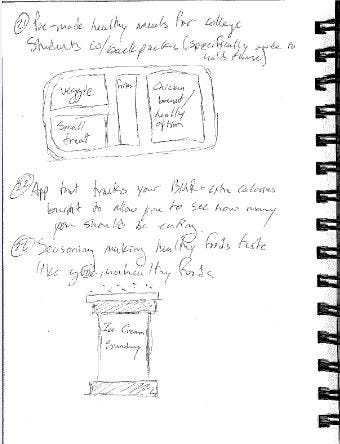 Pre-made healthy meals for college
students w/ backpacks (specifically made to
hold
veggie
small
treat
Chicken
breast/
healthy
option
22 App that tracks your BMR + extra calories
burned to allow you to see how many
you should be eating
Seasoning making healthy foods taste
like unhealthy foods
Ice Cream
Sunday